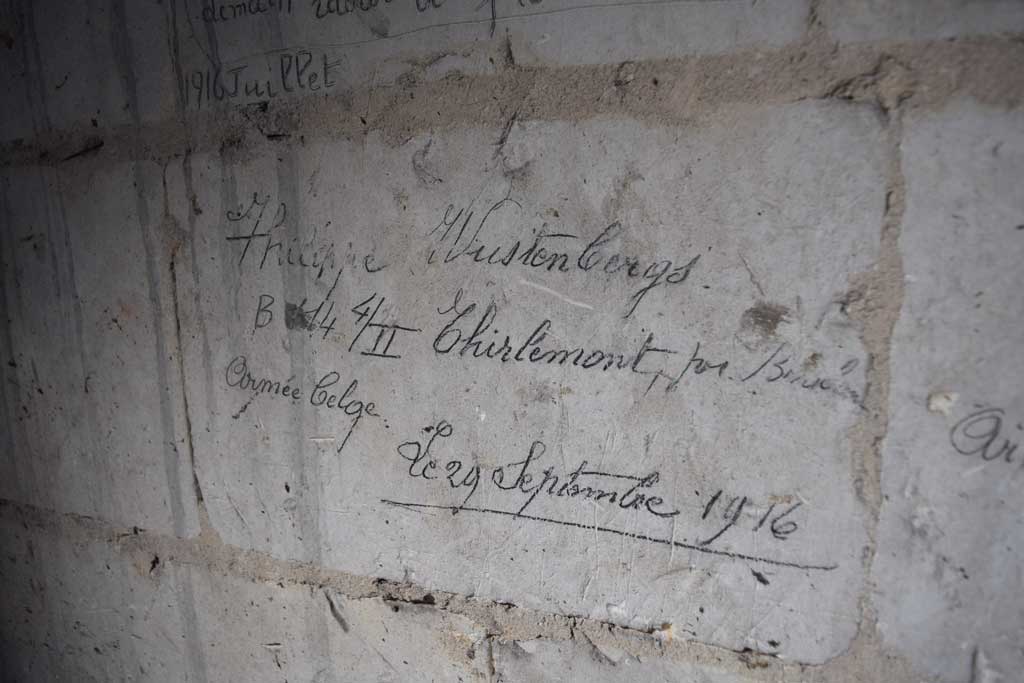 demain
1916 Juillet
Philippe Wustenbergs
B 14 4/II Thirlemont, par
Armée belge.
Le 29 Septembre 1916